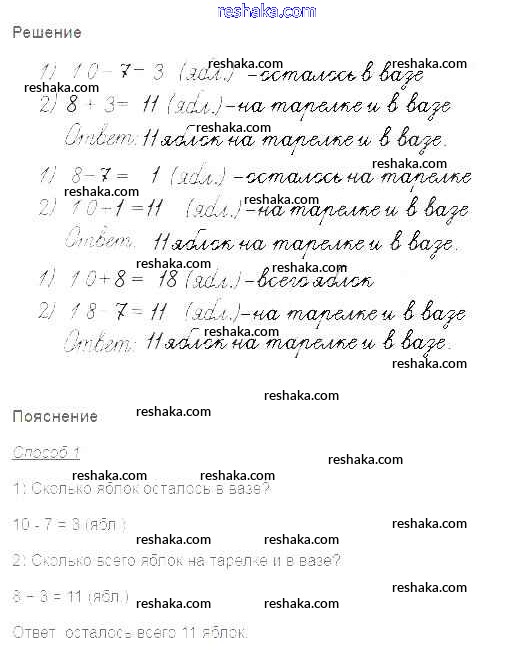 reshaka.com
Решение
reshaka.com reshaka.com
1) 10-7= 3 (ябл.) -осталось в вазе
reshaka.com
2) 8 + 3= 11 (ябл.)-на тарелке и в вазе
reshaka.com
Ответ: 11 яблок на тарелке и в вазе.
reshaka.com
1) 8-7= 1 (ябл.) -осталось на тарелке
reshaka.com reshaka.com
2) 10+1=11 (ябл.) -на тарелке и в вазе
Ответ: 11 яблок на тарелке и в вазе.
reshaka.com reshaka.com
1) 10+8= 18 (ябл.) -всего яблок
2) 18-7= 11 (ябл.)-на тарелке и в вазе
reshaka.com
Ответ: 11 яблок на тарелке и в вазе.
reshaka.com
reshaka.com
Пояснение reshaka.com
Способ 1
reshaka.com
reshaka.com reshaka.com
1) Сколько яблок осталось в вазе?
10 - 7 = 3 (ябл.) reshaka.com
reshaka.com reshaka.com
2) Сколько всего яблок на тарелке и в вазе?
reshaka.com
8 + 3 = 11 (ябл.) reshaka.com reshaka.com
Ответ: осталось всего 11 яблок.
reshaka.com